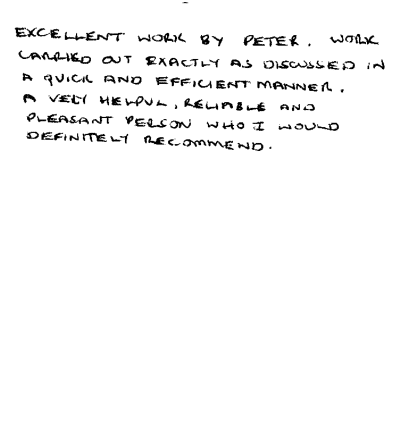 EXCELLENT WORK BY PETER. WORK
CARRIED OUT EXACTLY AS DISCUSSED IN
A QUICK AND EFFICIENT MANNER.
A VERY HELPFUL, RELIABLE AND
PLEASANT PERSON WHO I WOULD
DEFINITELY RECOMMEND.